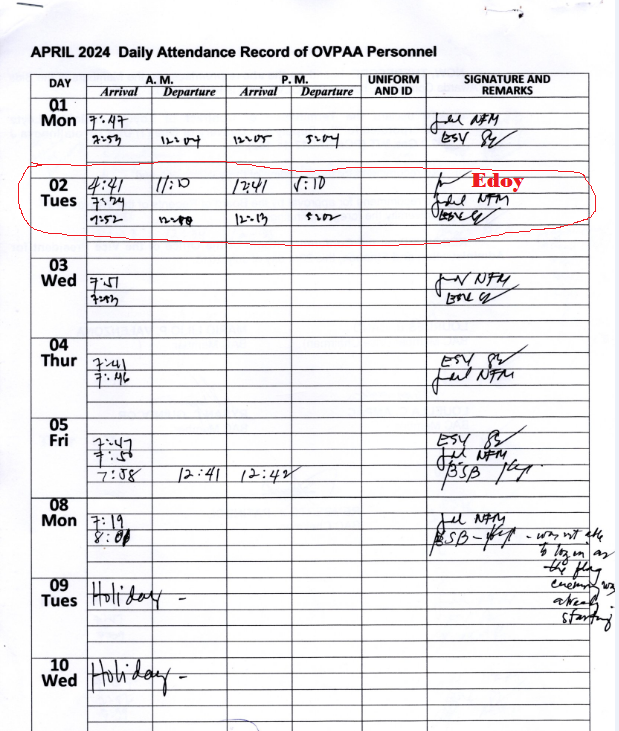 APRIL 2024 Daily Attendance Record of OVPAA Personnel
DAY A. M. P. M. UNIFORM AND ID SIGNATURE AND REMARKS
Arrival Departure Arrival Departure
01 Mon
7:47 NFM
7:53 12:04 12:05 5:04 ESY
02 Tues
4:41 11:10 12:41 5:10 Edoy
7:24 NFM
7:52 12:13 5:02
03 Wed
7:51 NFM
04 Thur
7:41 ESY
7:46 NFM
05 Fri
7:47 ESY
7:50 NFM
7:58 12:41 12:42 BSB
08 Mon
7:19 NFM
BSB - was not able
to log in as
the flag
ceremony was
already
starting
09 Tues
Holiday -
10 Wed
Holiday -